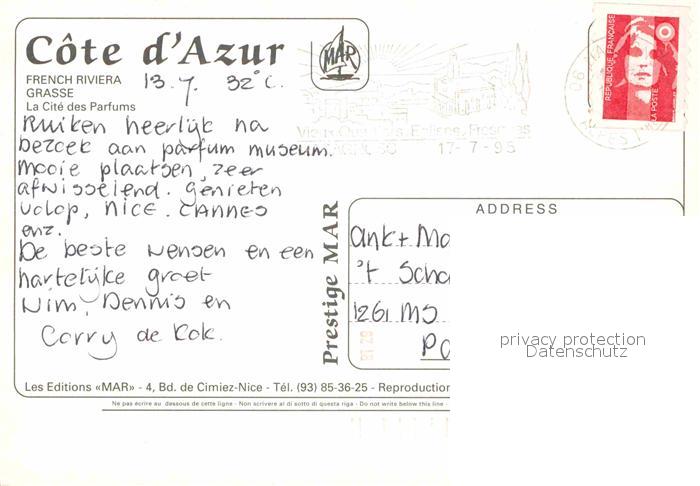 Côte d'Azur
MAR
FRENCH RIVIERA
GRASSE
La Cité des Parfums
13.7. 32°C.
Ruiken heerlijk na
bezoek aan parfum museum.
Mooie plaatsen, zeer
afwisselend. Genieten
volop, Nice. Cannes
enz.
De beste wensen en een
hartelijke groet
Wim, Dennis en
Corry de Kok.
17-7-95
06
REPUBLIQUE FRANÇAISE
LA POSTE
Prestige MAR
ADDRESS
Ank + Ma
't Scho
1261 MS
privacy protection
Datenschutz
Les Editions «MAR» - 4, Bd. de Cimiez-Nice - Tél. (93) 85-36-25 - Reproduction
Ne pas écrire au dessous de cette ligne - Non scrivere al di sotto di questa riga - Do not write below this line -